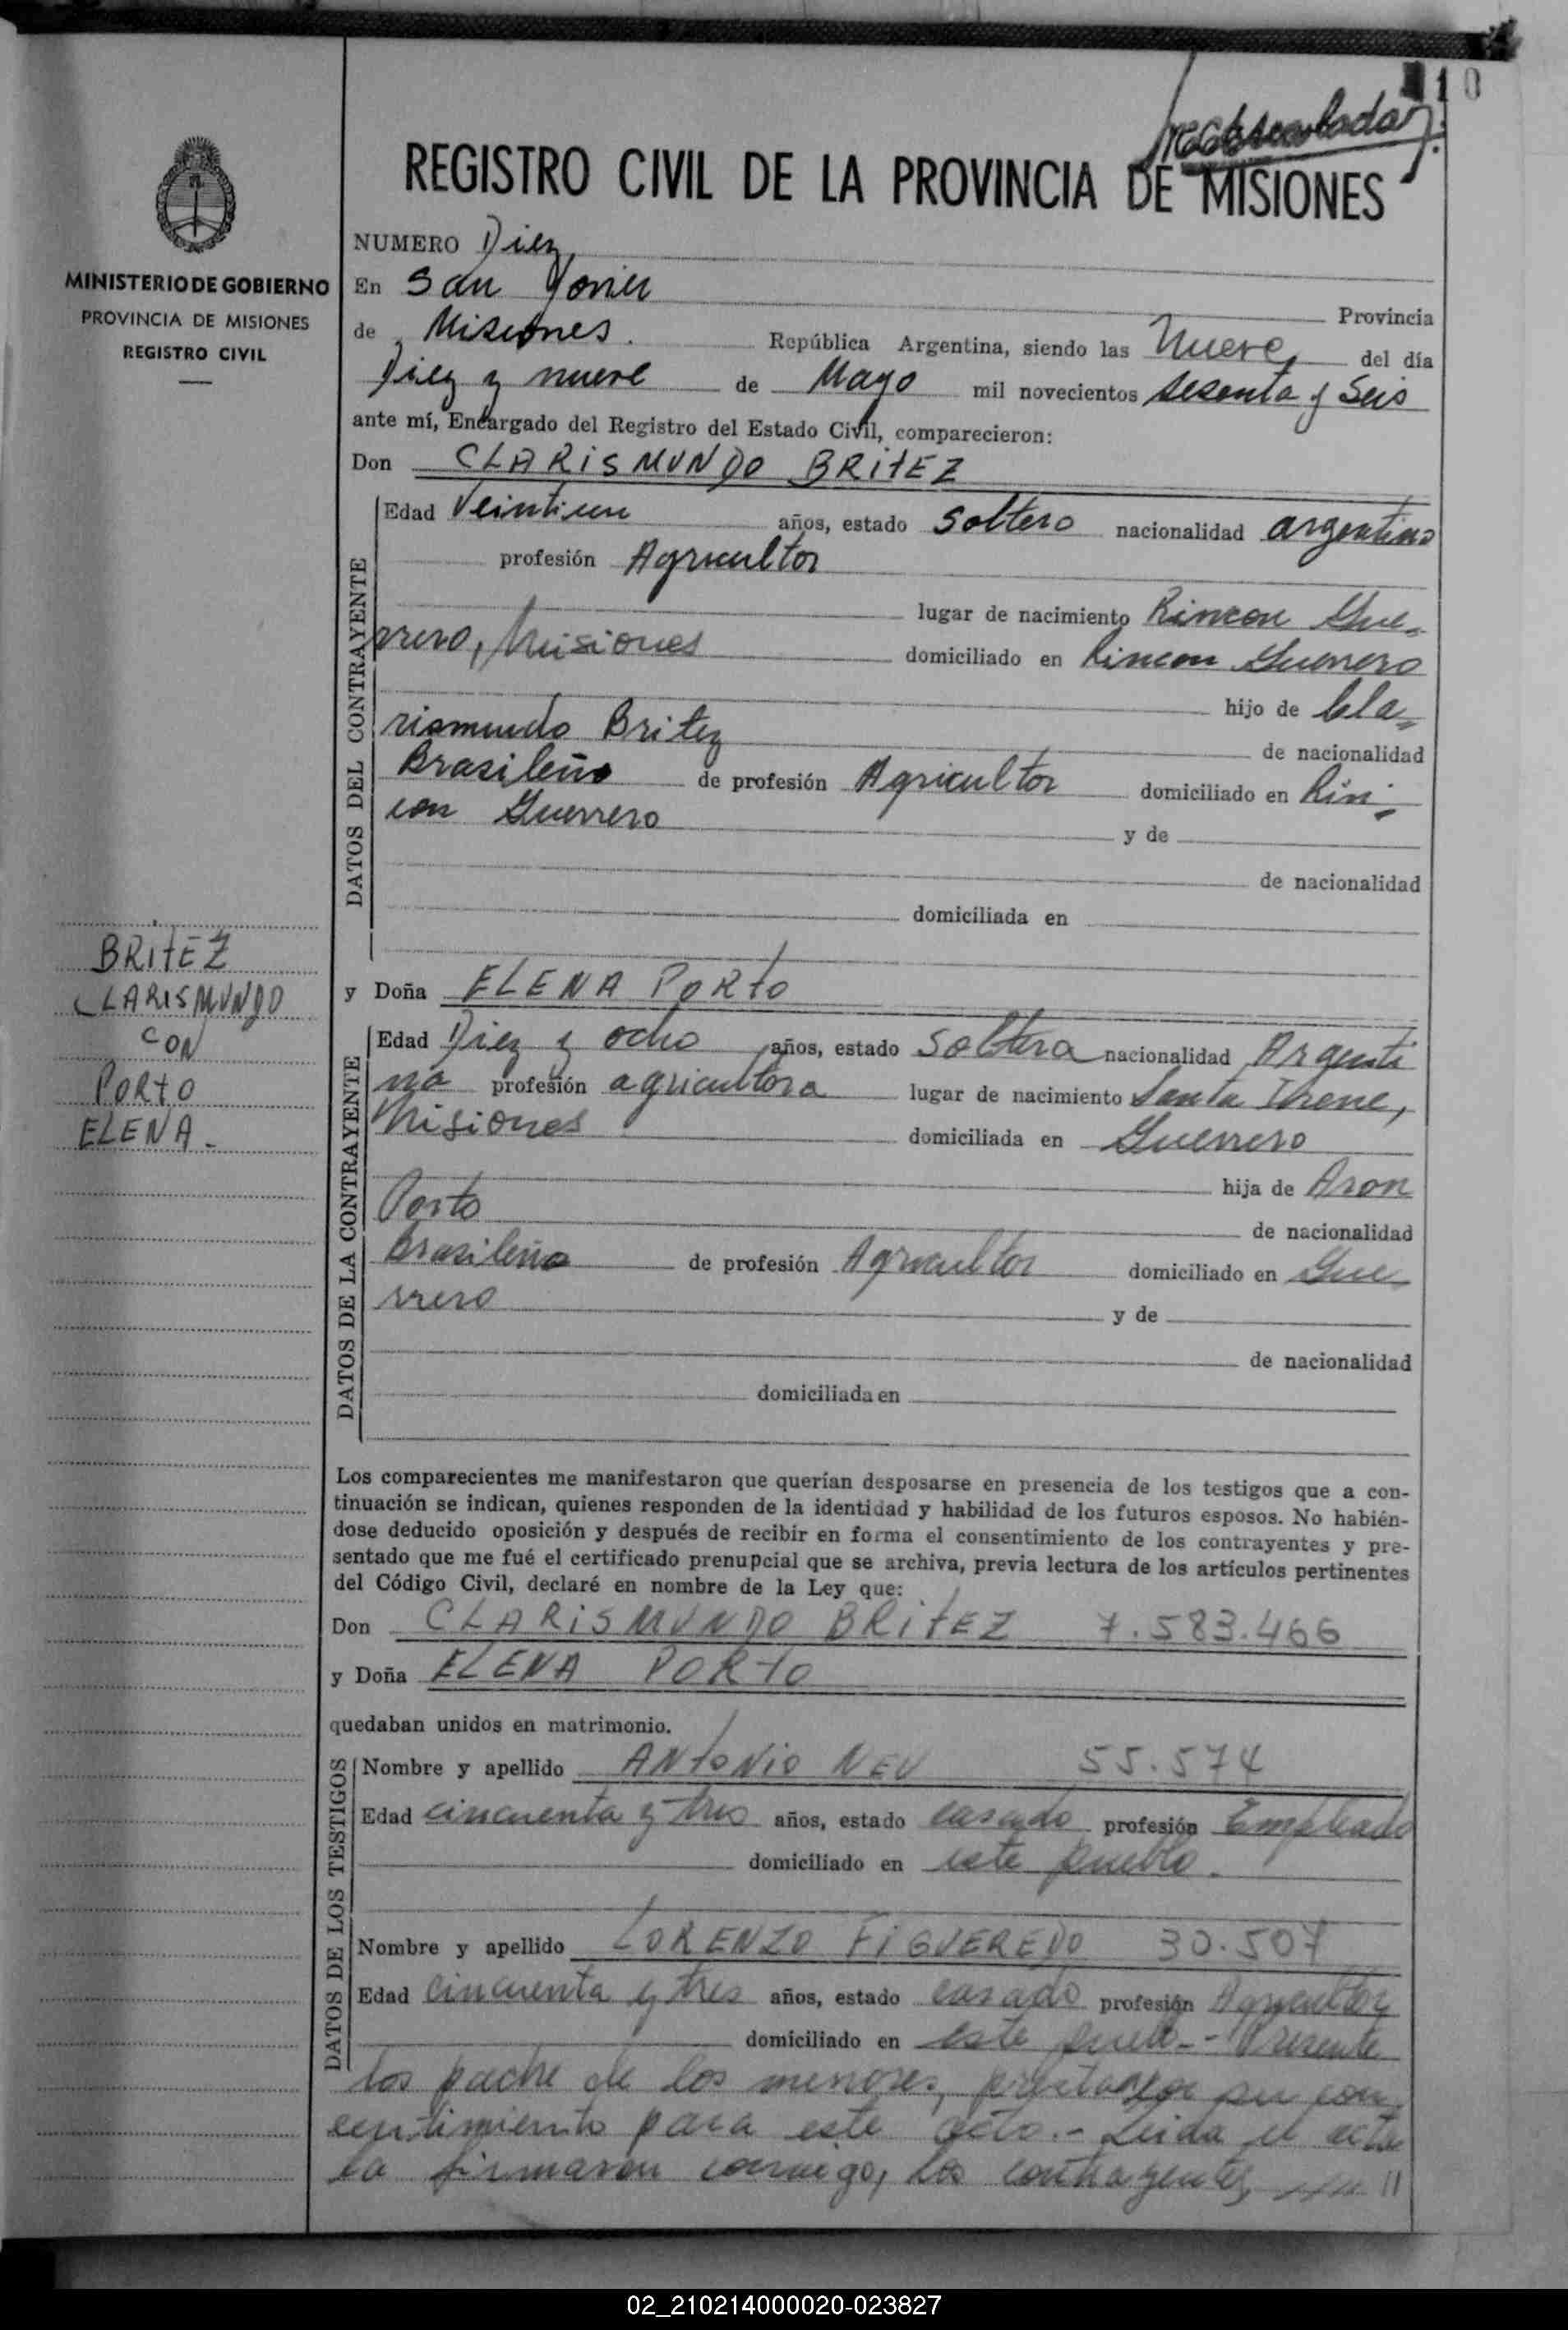 10
REGISTRO CIVIL DE LA PROVINCIA DE MISIONES
MINISTERIO DE GOBIERNO
PROVINCIA DE MISIONES
REGISTRO CIVIL
NUMERO Diez
En San Javier
Provincia
de Misiones. República Argentina, siendo las Nueve, del día
Diez y nueve de Mayo mil novecientos sesenta y Seis
ante mí, Encargado del Registro del Estado Civil, comparecieron:
Don CLARISMUNDO BRITEZ
DATOS DEL CONTRAYENTE
Edad Veintiun años, estado Soltero nacionalidad argentino
profesión Agricultor
lugar de nacimiento Rincon Gue-
rrero, Misiones domiciliado en Rincon Guerrero
hijo de Cla-
rismundo Britez
de nacionalidad
Brasileño de profesión Agricultor domiciliado en Rin-
con Guerrero y de
de nacionalidad
domiciliada en
BRITEZ
CLARISMUNDO
CON
PORTO
ELENA.-
y Doña ELENA PORTO
DATOS DE LA CONTRAYENTE
Edad Diez y ocho años, estado Soltera nacionalidad Argenti
na profesión agricultora lugar de nacimiento Santa Irene,
Misiones domiciliada en Guerrero
hija de Aron
Porto
de nacionalidad
Brasileño de profesión Agricultor domiciliado en Gue
rrero y de
de nacionalidad
domiciliada en
Los comparecientes me manifestaron que querían desposarse en presencia de los testigos que a con-
tinuación se indican, quienes responden de la identidad y habilidad de los futuros esposos. No habién-
dose deducido oposición y después de recibir en forma el consentimiento de los contrayentes y pre-
sentado que me fué el certificado prenupcial que se archiva, previa lectura de los artículos pertinentes
del Código Civil, declaré en nombre de la Ley que:
Don CLARISMUNDO BRITEZ 7.583.466
y Doña ELENA PORTO
quedaban unidos en matrimonio.
DATOS DE LOS TESTIGOS
Nombre y apellido ANTONIO NEU 55.574
Edad cincuenta y tres años, estado casado profesión Empleado
domiciliado en este pueblo.
Nombre y apellido LORENZO FIGUEREDO 30.507
Edad cincuenta y tres años, estado casado profesión Agricultor
domiciliado en este pueblo.- Presente
los padre de los menores, su con
sentimiento para este acto.- Leida el acta
la firmaron conmigo, los contrayentes, //
02_210214000020-023827